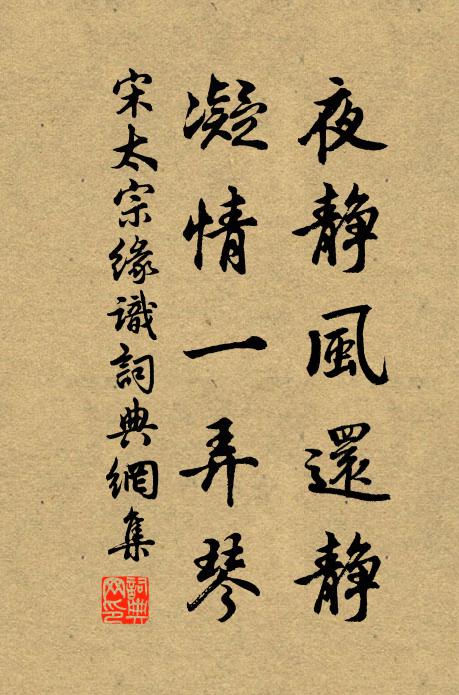 夜静風還静
凝情一弄琴
宋太宗緣識詞典網集
詞典網印